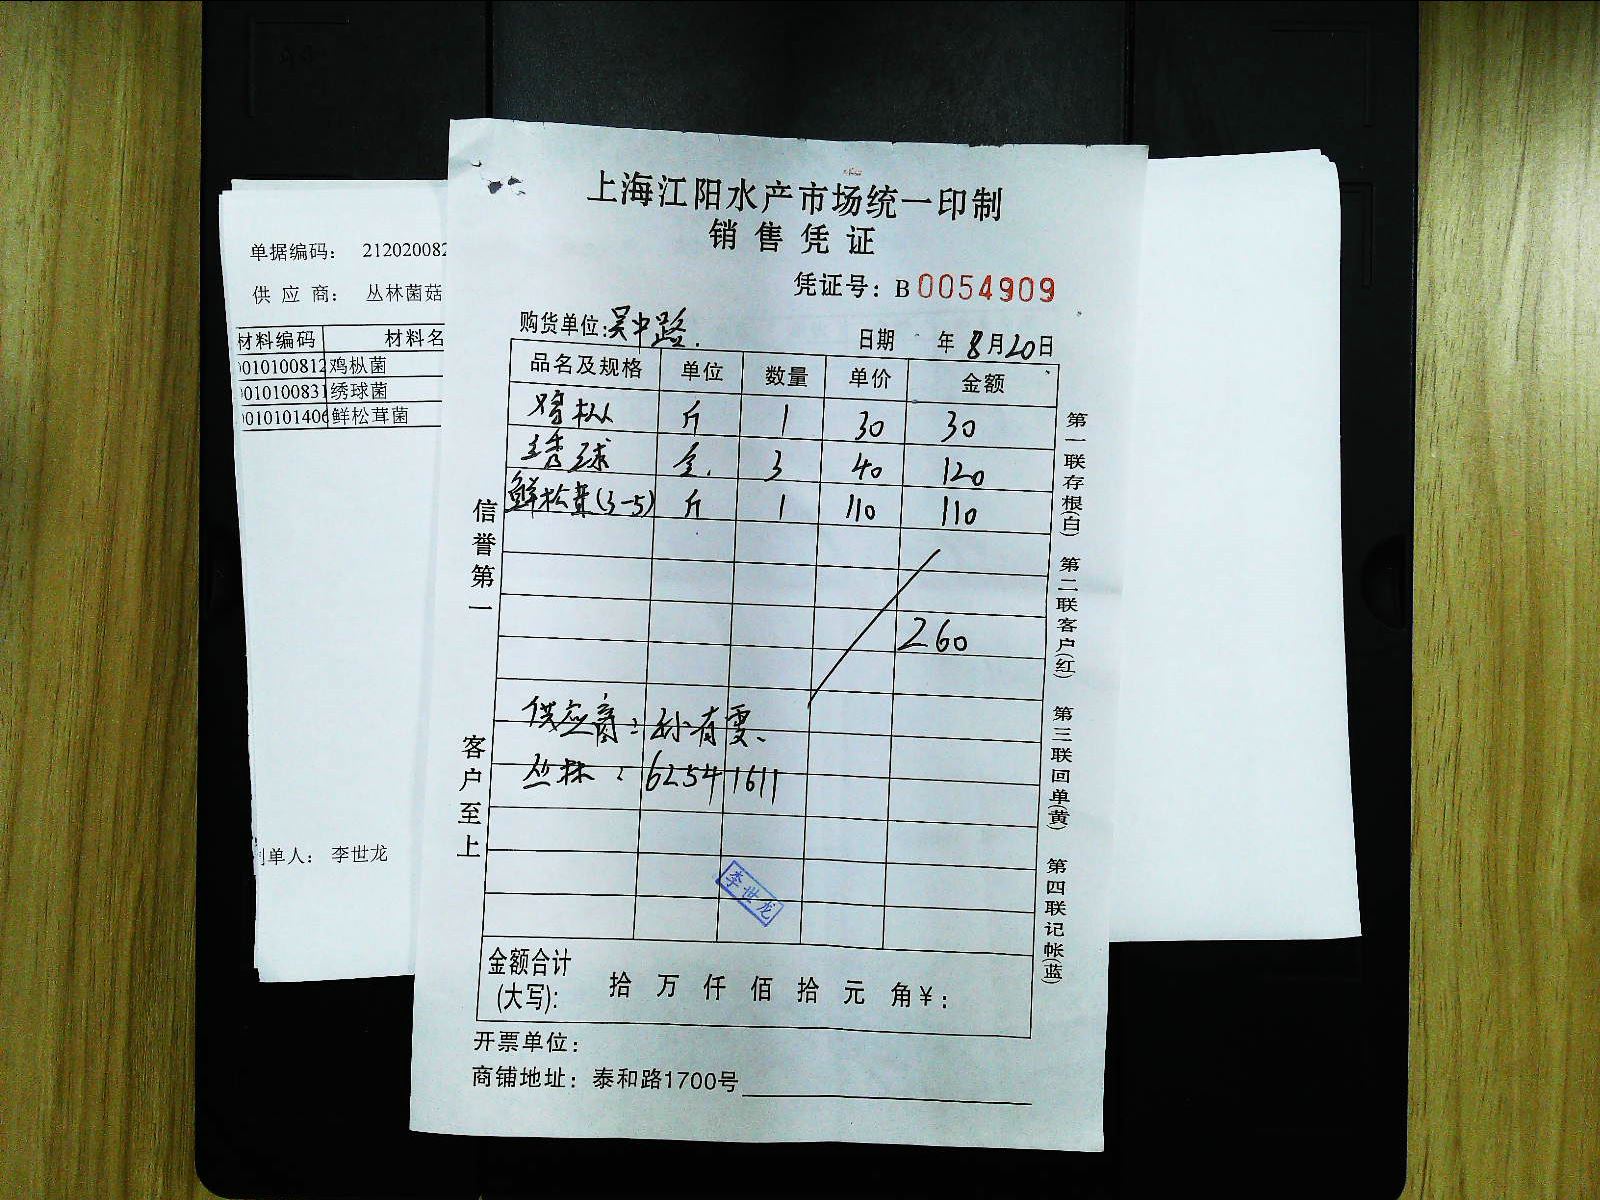 上海江阳水产市场统一印制
销售凭证
凭证号：B0054909
购货单位：吴中路.
日期 年8月20日
品名及规格 单位 数量 单价 金额
鸡枞 斤 1 30 30
绣球 3 40 120
鲜松茸(3-5) 斤 1 110 110
260
供应商：孙有雯、
丛林：62541611
李世龙
金额合计(大写)： 拾 万 仟 佰 拾 元 角¥：
开票单位：
商铺地址：泰和路1700号
信誉第一
客户至上
第一联存根(白)
第二联客户(红)
第三联回单(黄)
第四联记帐(蓝)
单据编码： 212020082
供应商： 丛林菌菇
材料编码 材料名
010100812 鸡枞菌
010100831 绣球菌
010101406 鲜松茸菌
制单人： 李世龙